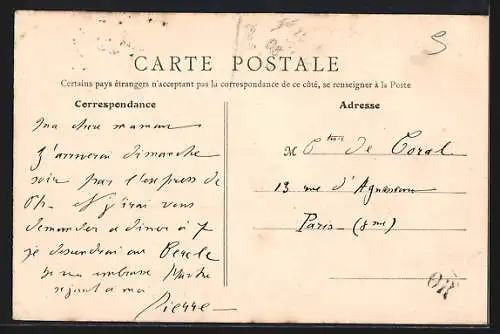 CARTE POSTALE
Certains pays étrangers n'acceptant pas la correspondance de ce côté, se renseigner à la Poste
Correspondance
Adresse
Ma chère maman
J'arriverai dimanche
soir par l'express de
6h. et j'irai vous
demander à diner à 7
je descendrai au Cercle
je vous embrasse
Pierre
M Ctesse de Coral
13 rue d'Aguesseau
Paris - (8me)
OR